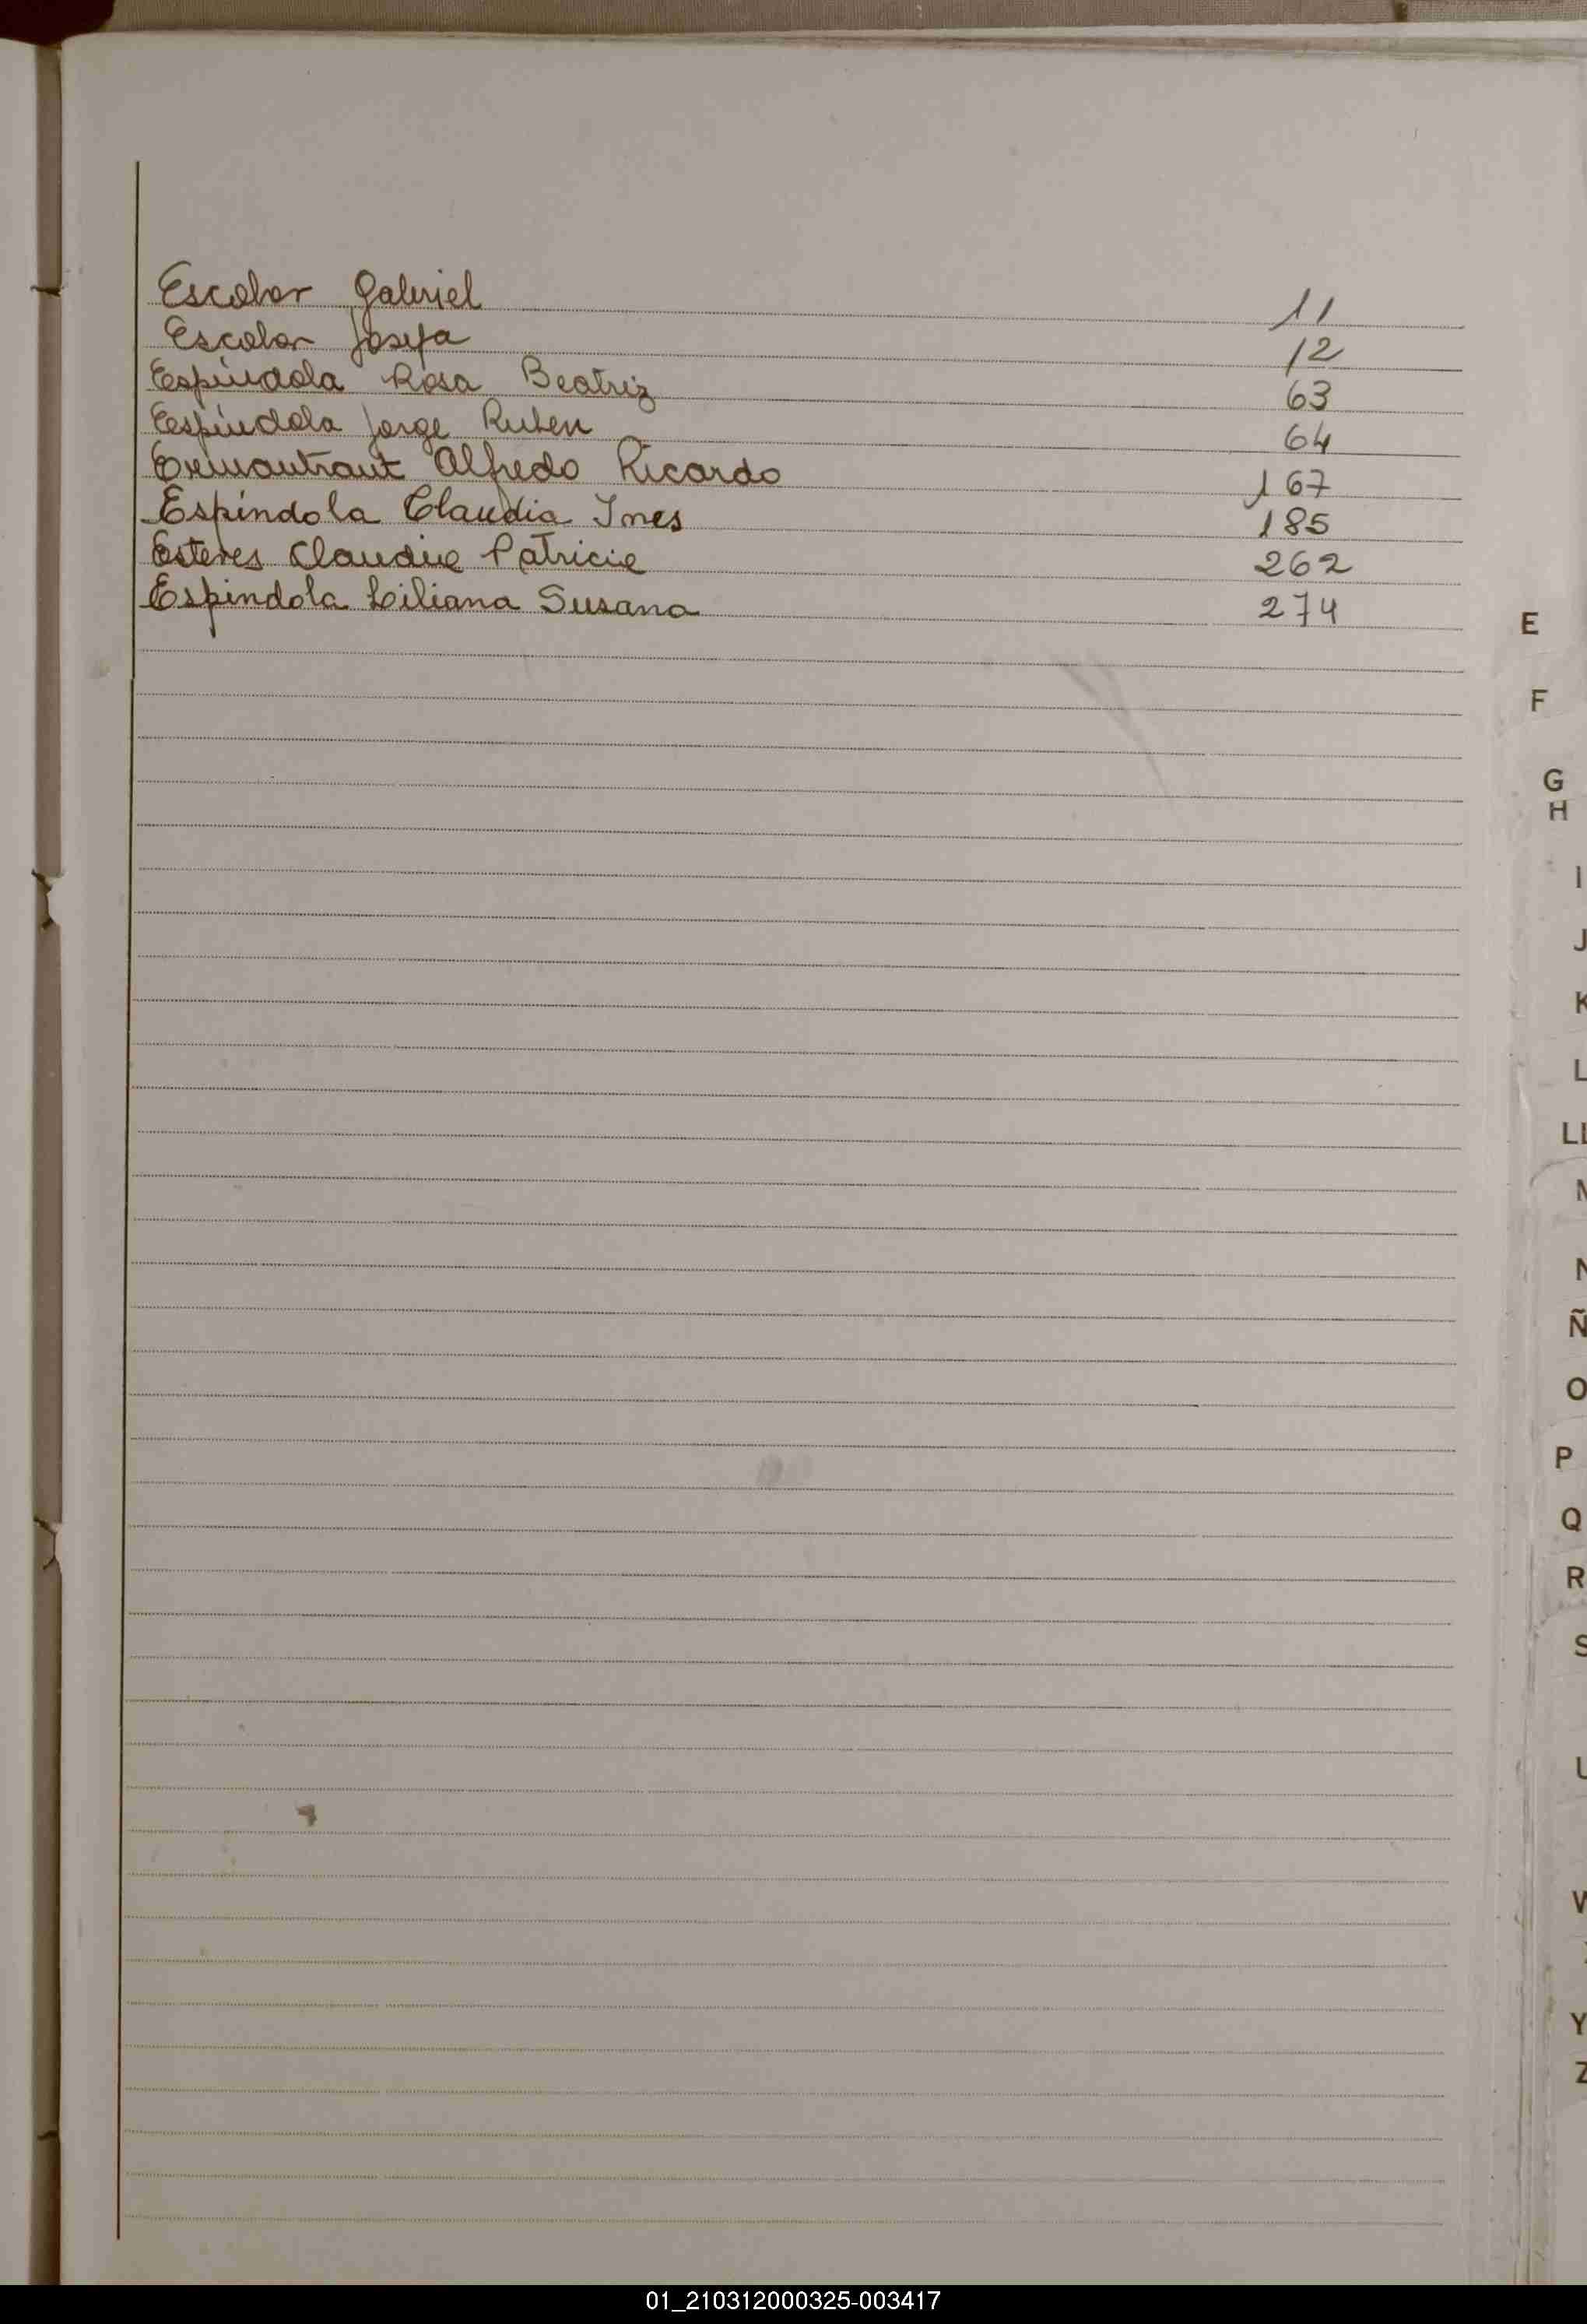 Escobar Gabriel 11
Escobar Josefa 12
Espíndola Rosa Beatriz 63
Espíndola Jorge Ruben 64
Alfredo Ricardo 167
Espíndola Claudia Ines 185
Esteves Claudia Patricia 262
Espindola Liliana Susana 274
E
F
G
H
I
J
K
L
LL
M
N
Ñ
O
P
Q
R
S
U
Y
Z
01_210312000325-003417